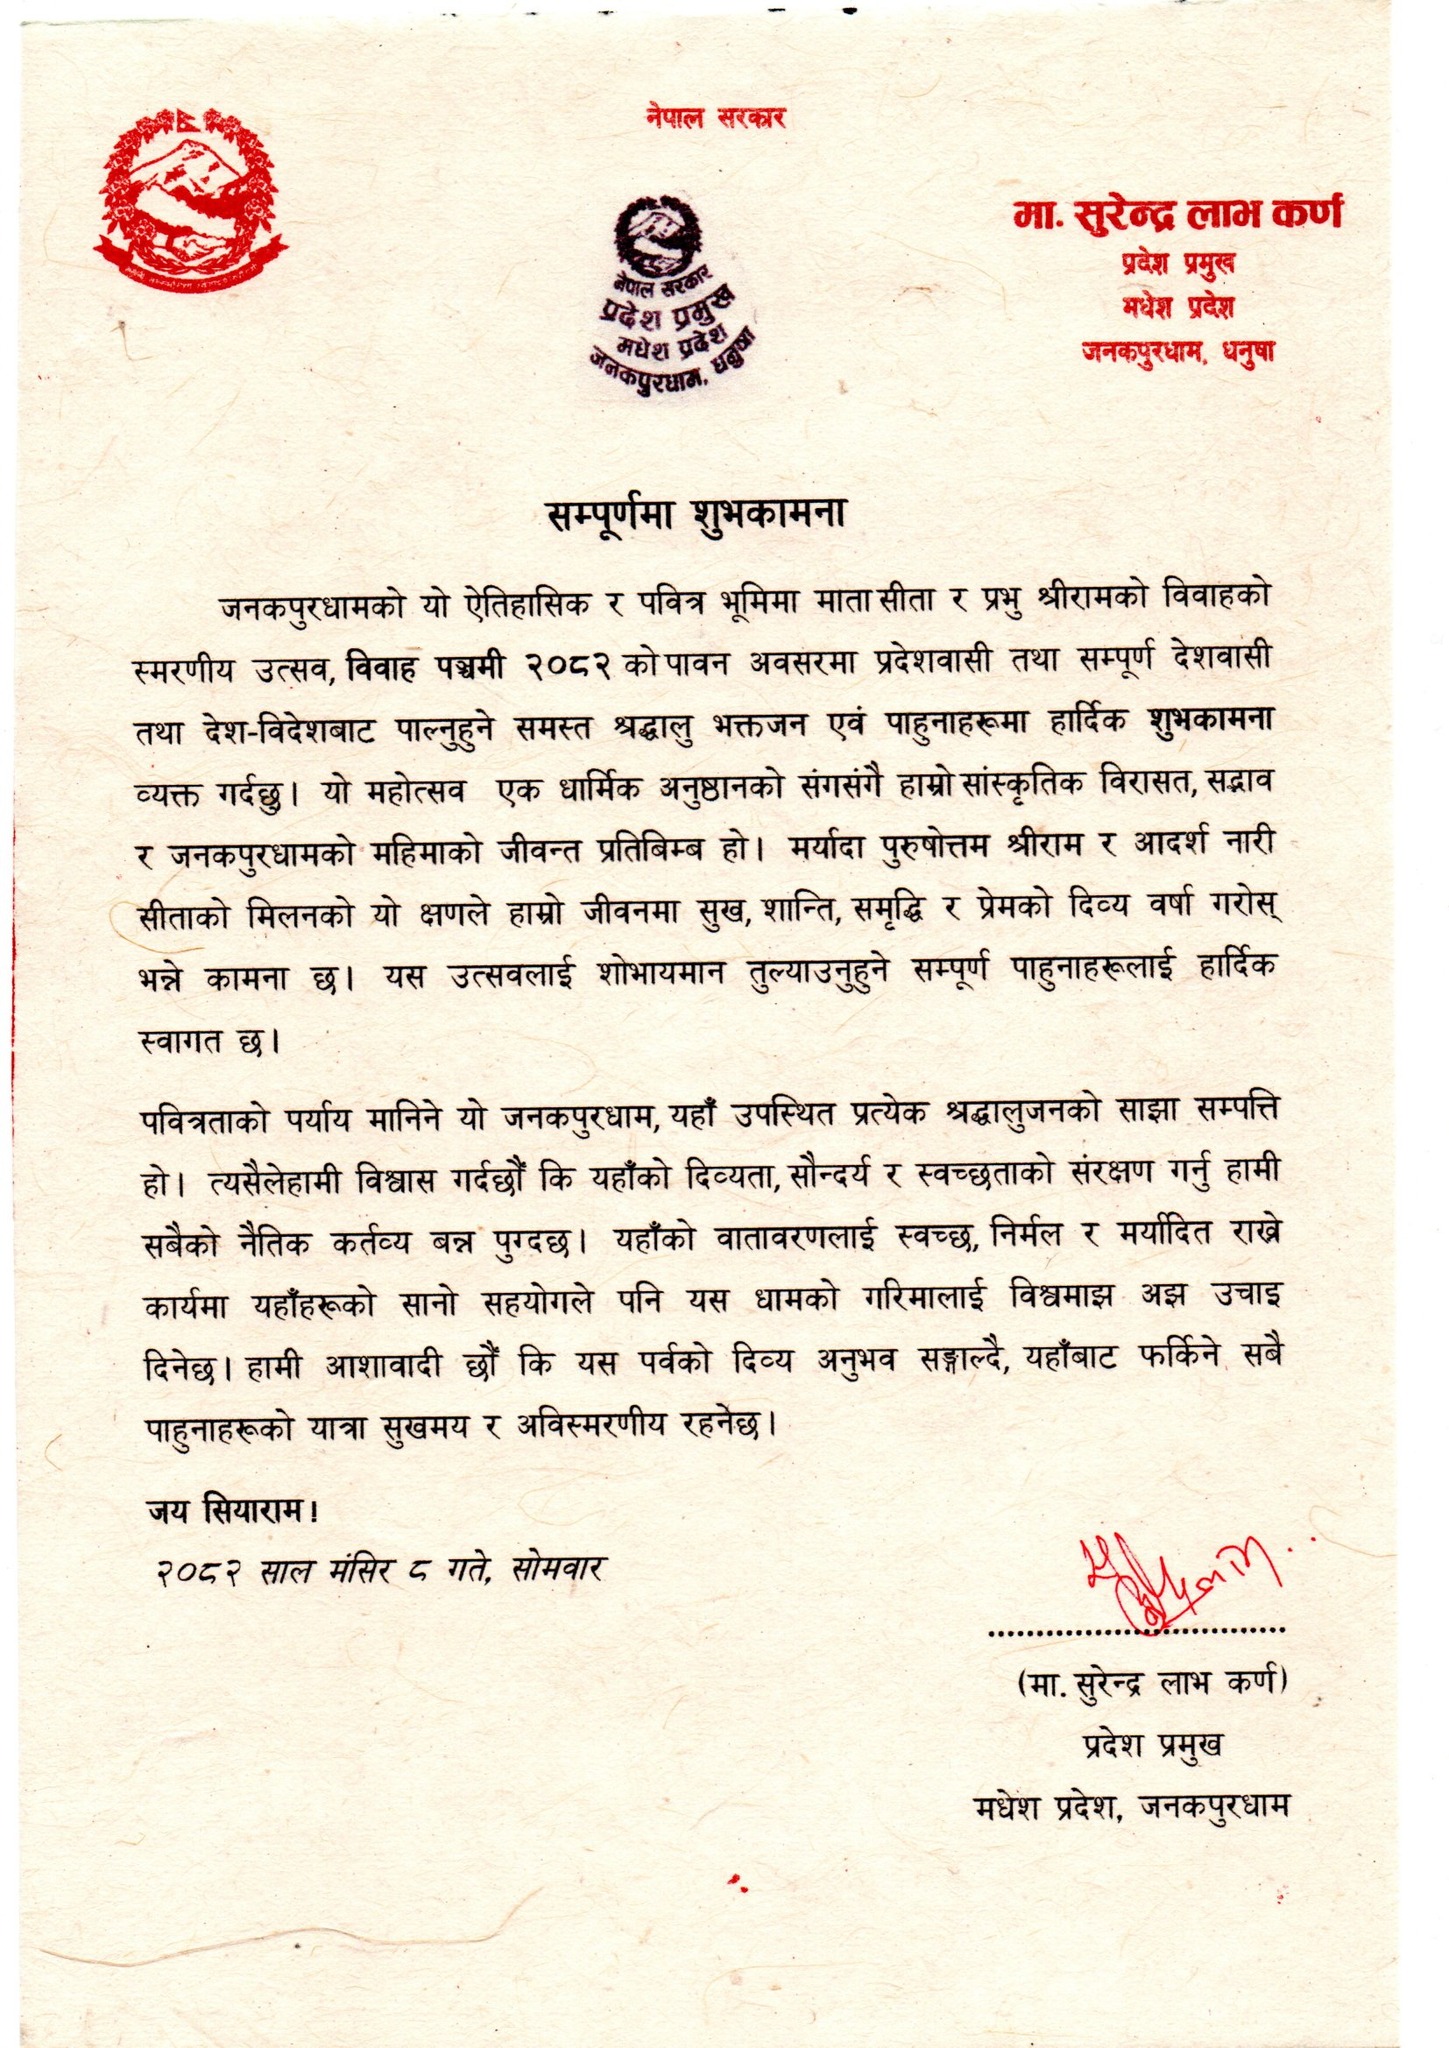 नेपाल सरकार
मा. सुरेन्द्र लाभ कर्ण
प्रदेश प्रमुख
मधेश प्रदेश
जनकपुरधाम, धनुषा
नेपाल सरकार
प्रदेश प्रमुख
मधेश प्रदेश
जनकपुरधाम, धनुषा
सम्पूर्णमा शुभकामना
जनकपुरधामको यो ऐतिहासिक र पवित्र भूमिमा माता सीता र प्रभु श्रीरामको विवाहको
स्मरणीय उत्सव, विवाह पञ्चमी २०८२ को पावन अवसरमा प्रदेशवासी तथा सम्पूर्ण देशवासी
तथा देश-विदेशबाट पाल्नुहुने समस्त श्रद्धालु भक्तजन एवं पाहुनाहरूमा हार्दिक शुभकामना
व्यक्त गर्दछु। यो महोत्सव एक धार्मिक अनुष्ठानको संगसंगै हाम्रो सांस्कृतिक विरासत, सद्भाव
र जनकपुरधामको महिमाको जीवन्त प्रतिबिम्ब हो। मर्यादा पुरुषोत्तम श्रीराम र आदर्श नारी
सीताको मिलनको यो क्षणले हाम्रो जीवनमा सुख, शान्ति, समृद्धि र प्रेमको दिव्य वर्षा गरोस्
भन्ने कामना छ। यस उत्सवलाई शोभायमान तुल्याउनुहुने सम्पूर्ण पाहुनाहरूलाई हार्दिक
स्वागत छ।
पवित्रताको पर्याय मानिने यो जनकपुरधाम, यहाँ उपस्थित प्रत्येक श्रद्धालुजनको साझा सम्पत्ति
हो। त्यसैलेहामी विश्वास गर्दछौं कि यहाँको दिव्यता, सौन्दर्य र स्वच्छताको संरक्षण गर्नु हामी
सबैको नैतिक कर्तव्य बन्न पुग्दछ। यहाँको वातावरणलाई स्वच्छ, निर्मल र मर्यादित राख्ने
कार्यमा यहाँहरूको सानो सहयोगले पनि यस धामको गरिमालाई विश्वमाझ अझ उचाइ
दिनेछ। हामी आशावादी छौं कि यस पर्वको दिव्य अनुभव सङ्गाल्दै, यहाँबाट फर्किने सबै
पाहुनाहरूको यात्रा सुखमय र अविस्मरणीय रहनेछ।
जय सियाराम!
२०८२ साल मंसिर ८ गते, सोमवार
(मा. सुरेन्द्र लाभ कर्ण)
प्रदेश प्रमुख
मधेश प्रदेश, जनकपुरधाम